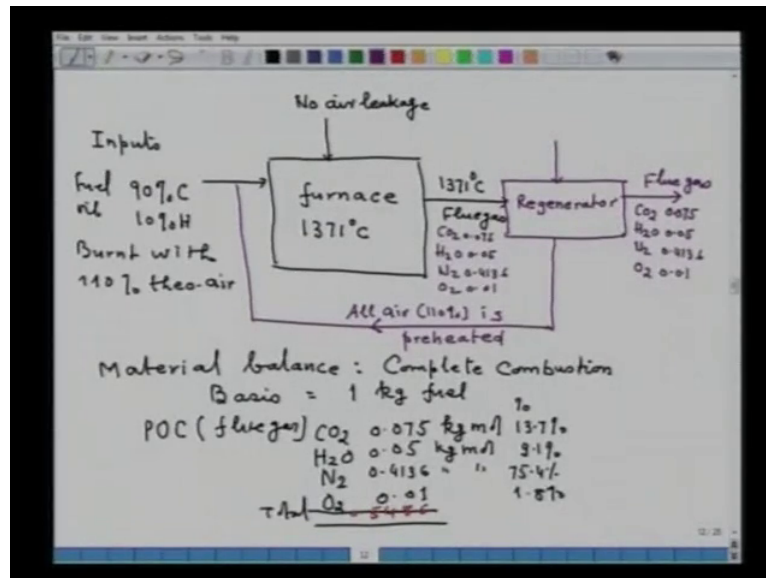 File Edit View Insert Actions Tools Help
No air leakage
Inputs
Fuel 90% C
oil 10% H
Burnt with
110% theo. air
furnace
1371°C
1371°C
Flue gas
CO2 0.075
H2O 0.05
N2 0.4136
O2 0.01
Regenerator
Flue gas
CO2 0.075
H2O 0.05
N2 0.4136
O2 0.01
All air (110%) is
preheated
Material balance : Complete Combustion
Basis = 1 kg fuel
%
POC (flue gas) CO2 0.075 kg mol 13.7%
H2O 0.05 kg mol 9.1%
N2 0.4136 " " 75.4%
O2 0.01 1.8%
Total 0.5486
12/25
12